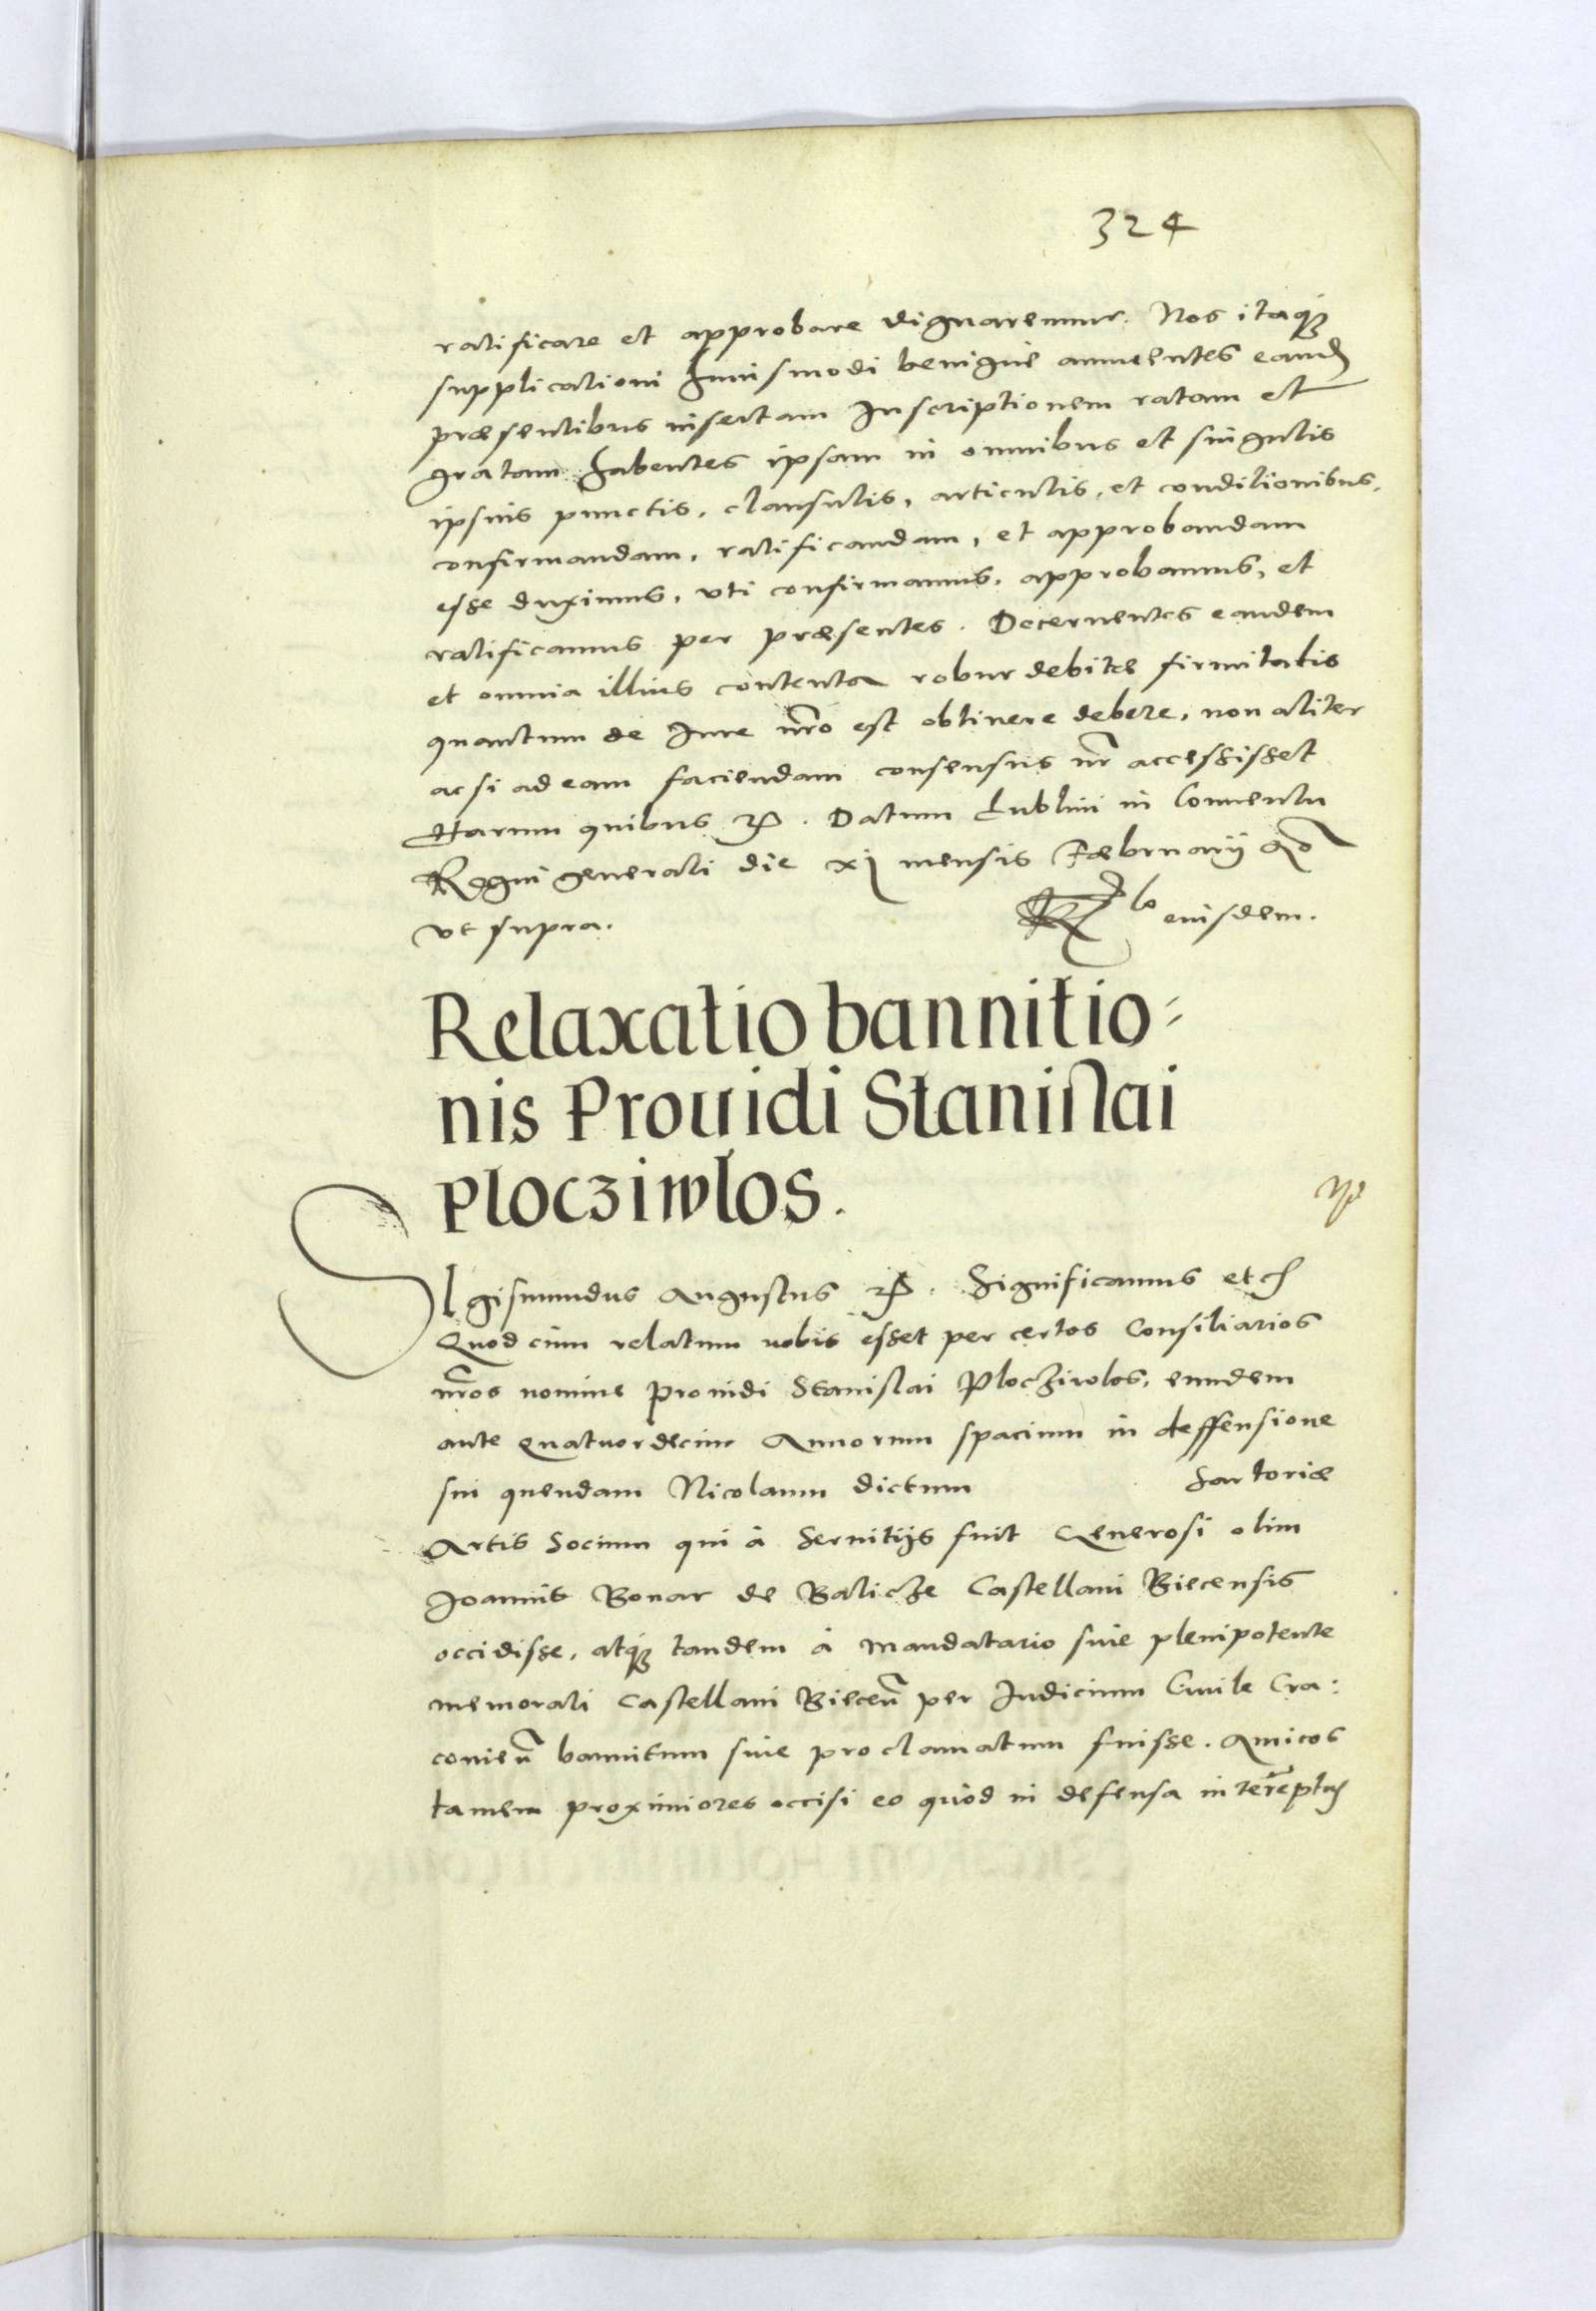 324
ratificare et approbare dignaremur. Nos itaqꝫ
supplicationi huiusmodi benigne annuentes eand
præsentibus insertam Inscriptionem ratam et
gratam habentes ipsam in omnibus et singulis
ipsius punctis, clausulis, articulis, et conditionibus,
confirmandam, ratificandam, et approbandam
esse duximus, vti confirmamus, approbamus, et
ratificamus per præsentes. Decernentes eandem
et omnia illius contenta robur debitæ firmitatis
quantum de Iure nr̃o est obtinere debere, non aliter
ac si ad eam faciendam consensus nr̃ accessisset
Harum quibus . Datum Lublini in Conuentu
Regni generali die xj mensis Fæbruarij
vt supra. eiusdem.
Relaxatio bannitio⸗
nis Prouidi Stanislai
Ploczÿwlos.
Sigismundus Augustus . Significamus etc
Quod cùm relatum nobis esset per certos Consiliarios
nr̃os nomine prouidi Stanislai Ploczÿwlos, eundem
ante quatuordecim Annorum spacium in deffensione
sui quendam Nicolaum dictum Sartoriæ
Artis Socium qui à Seruitijs fuit Generosi olim
Joannis Bonar de Balicze Castellani Biecensis
occidisse, atqꝫ tandem à mandatario siue plenipotente
memorati Castellani Biecen̄ per Iudicium Ciuile Cra:
couien̄ bannitum siue proclamatum fuisse. Amicos
tamen proximiores occisi eo quòd in defensa interemptus